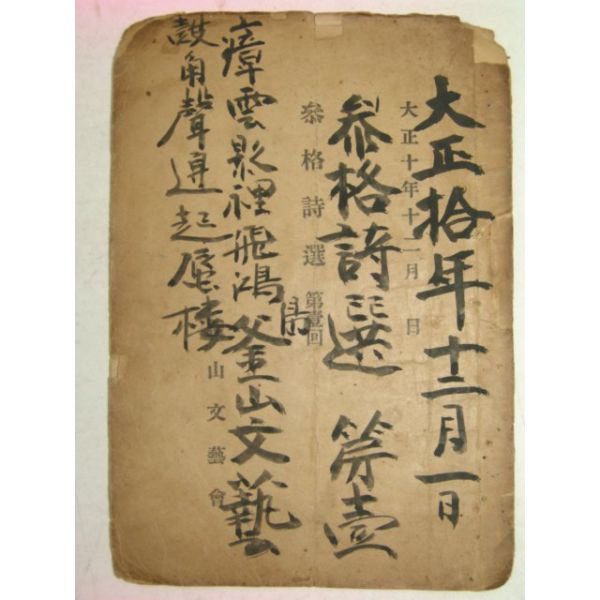 大正拾年十二月一日
大正十年十二月 日
叅格詩選 第壹
叅格詩選 第壹回
瘴雲影裡飛鴻
釜山文藝
山文藝會
鼓角聲邊起蜃楼